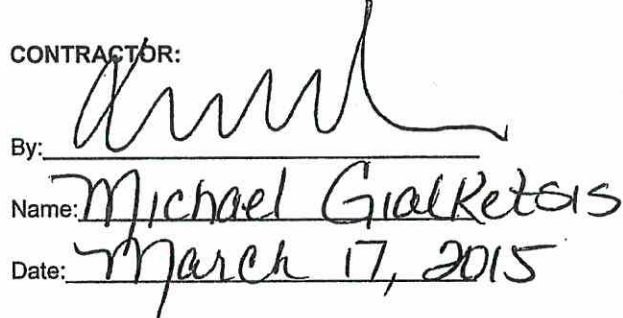 CONTRACTOR:
By:
Name: Michael Gialketsis
Date: March 17, 2015